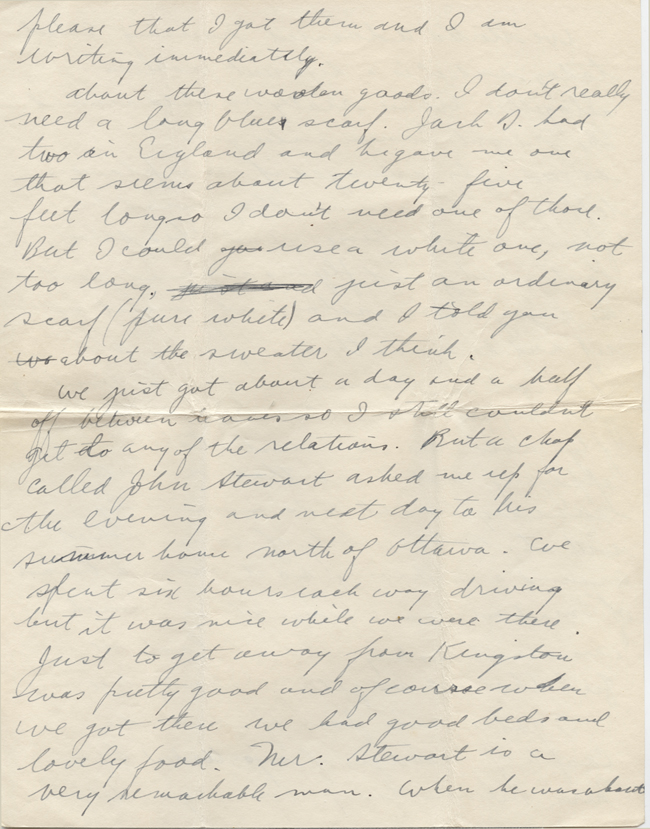 please that I got them and I am
writing immediately.
about these woolen goods. I don't really
need a long blue scarf. Jack D. had
two in England and he gave me one
that seems about twenty five
feet long so I don't need one of those.
But I could use a white one, not
too long, just an ordinary
scarf (pure white) and I told you
about the sweater I think.
we just got about a day and a half
off between so I still couldn't
get to any of the relations. But a chap
called John Stewart asked me up for
the evening and next day to his
summer home north of Ottawa. We
spent six hours each way driving
but it was nice while we were there.
Just to get away from Kingston
was pretty good and of course when
we got there we had good beds and
lovely food. Mr. Stewart is a
very remarkable man. When he was about